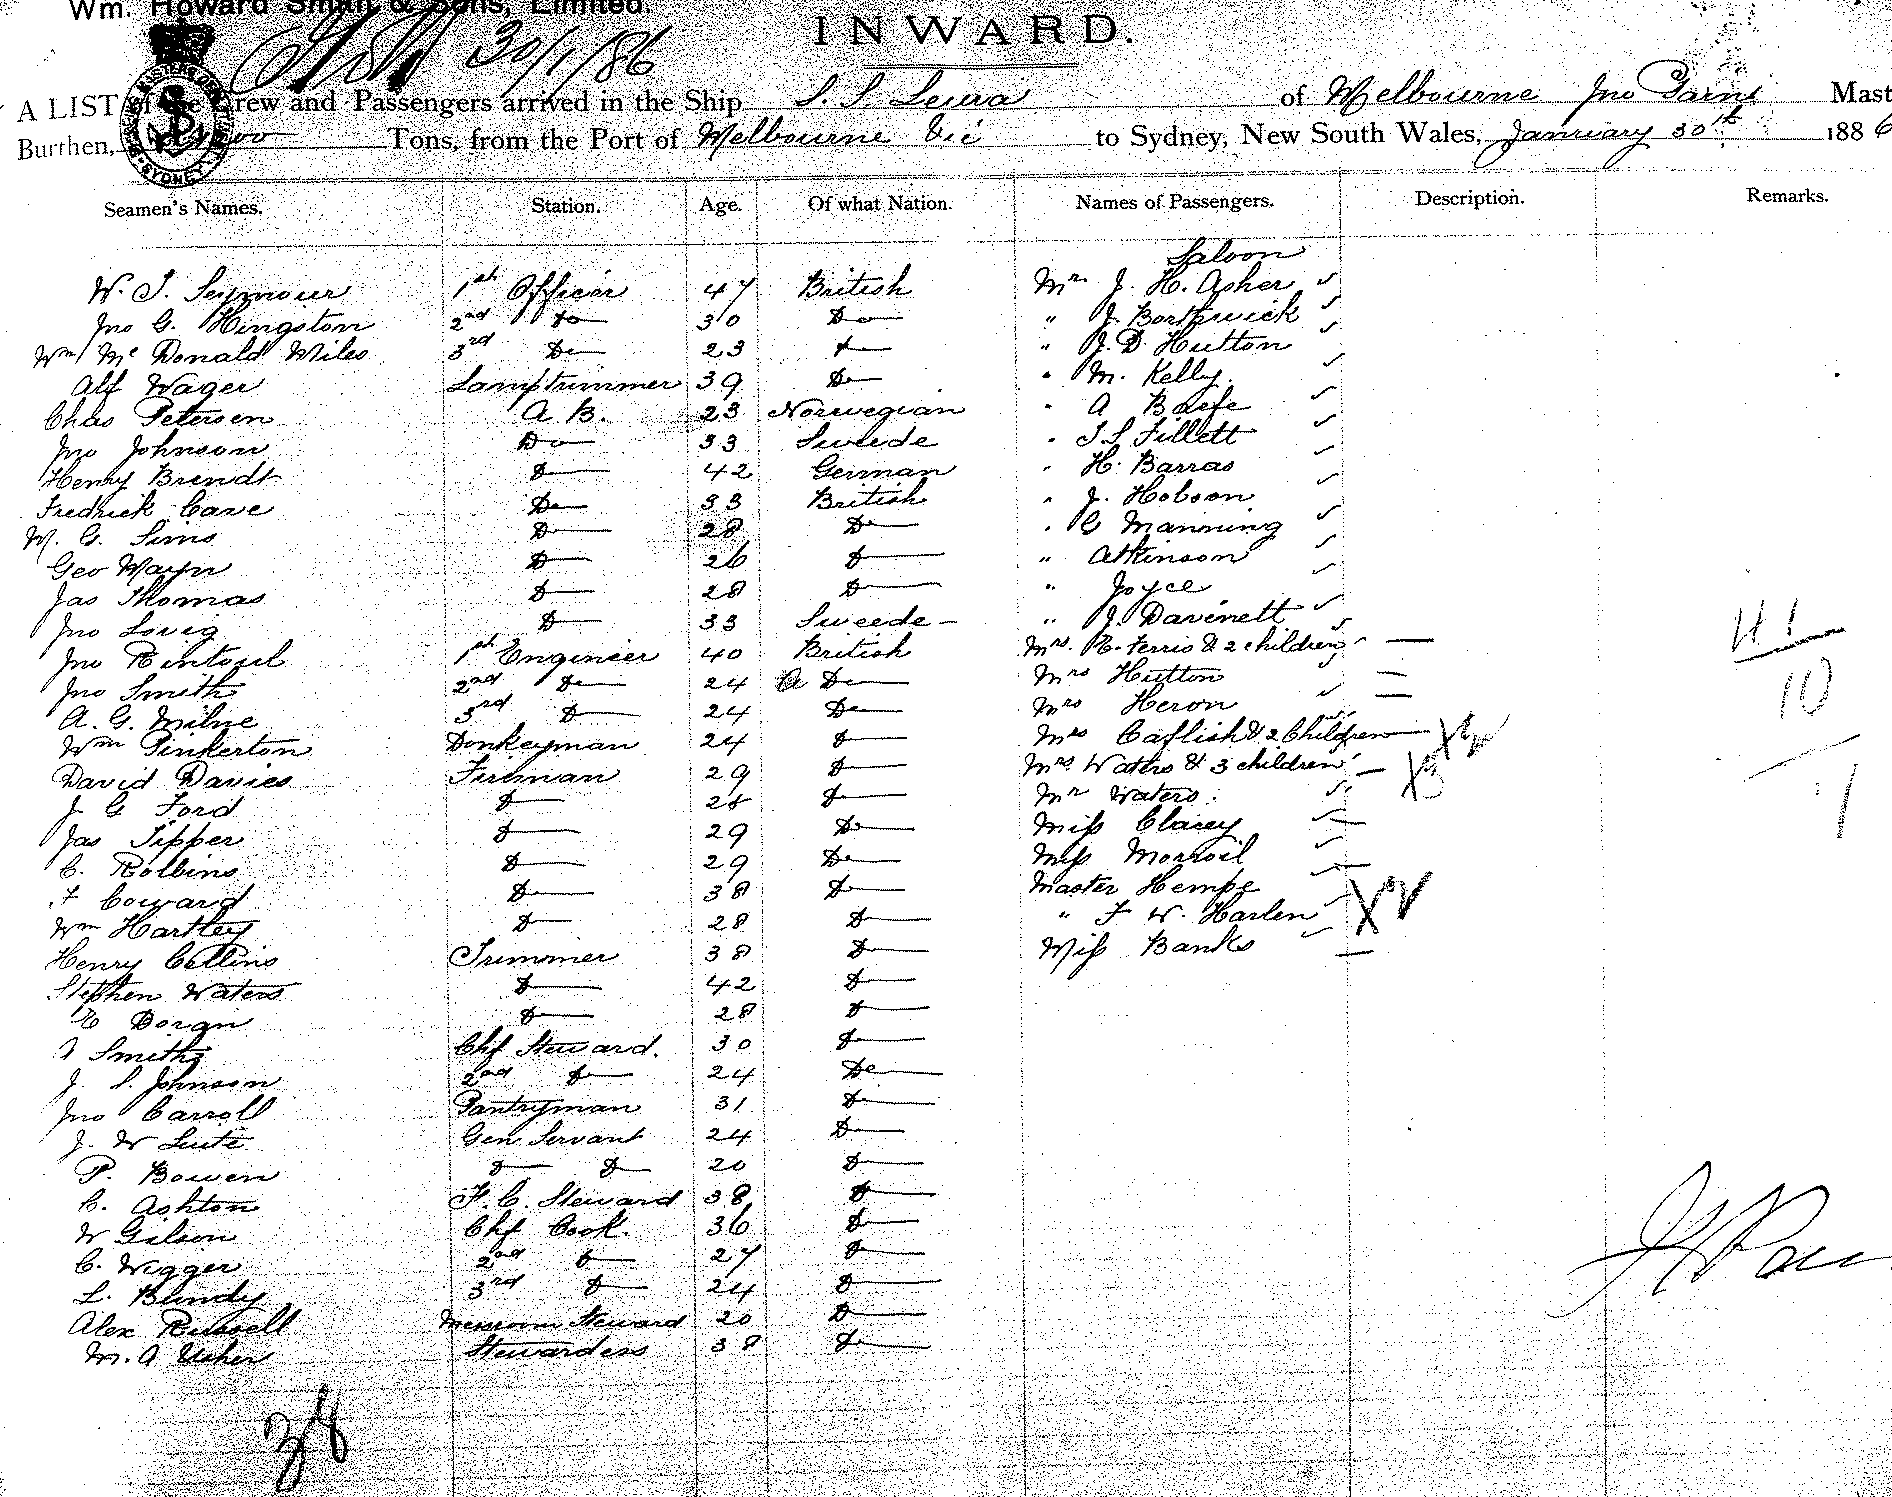 Wm. Howard Smith & Sons, Limited.
INWARD.
30/1/86
A LIST of the Crew and Passengers arrived in the Ship S. S. Leura of Melbourne Jno Mast
Burthen, Tons, from the Port of Melbourne Vic to Sydney, New South Wales, January 30th 1886
Seamen's Names. Station. Age. Of what Nation. Names of Passengers. Description. Remarks.
Saloon
W. J. Seymour 1st Officer 47 British Mr. J. H. Asher
Jno G. Hingston 2nd Do 30 Do " J. Borthwick
Wm Mc Donald Miles 3rd Do 23 Do " J. D. Hutton
Alf Wager Lamptrimmer 39 Do " M. Kelly.
Chas Petersen A B. 23 Norwegian " A
Jno Johnson Do 33 Sweede " Fillett
Henry Brendt Do 42 German " H. Barras
Fredrick Cave Do 33 British " J. Hobson
W. G. Sims Do 28 Do " Manning
Geo Do 26 Do " Atkinson
Jas Thomas Do 28 Do " Joyce
Jno Do 33 Sweede " J. Davinett
Jno Rintoul 1st Engineer 40 British Mrs. Ferris & 2 children
Jno Smith 2nd Do 24 Do Mrs Hutton
A. G. Milne 3rd Do 24 Do Mrs Heron
Wm Pinkerton Donkeyman 24 Do Mrs Caflish & 2 Children
David Davies Fireman 29 Do Mrs. Waters & 3 children
J G Ford Do 28 Do Mr Waters.
Jas Tipper Do 29 Do Miss Clarey
C. Robbins Do 29 Do Miss
F Coward Do 38 Do Master Hempe
Wm Hartley Do 28 Do " F W. Harlen
Henry Collins Trimmer 38 Do Miss Banks
Stephen Waters Do 42 Do
E Doran Do 28 Do
Smith Chf Steward. 30 Do
J. S. Johnson 2nd Do 24 Do
Jno Carroll Pantryman 31 Do
J. W Gen Servant 24 Do
P. Bowen Do Do 20 Do
C. Ashton F. C. Steward 38 Do
W Gilson Chf Cook. 36 Do
C. Wigger 2nd Do 27 Do
L. Bundy 3rd Do 24 Do
Alex Russell Messroom Steward 20 Do
M. A Usher Stewardess 38 Do
41
10
38